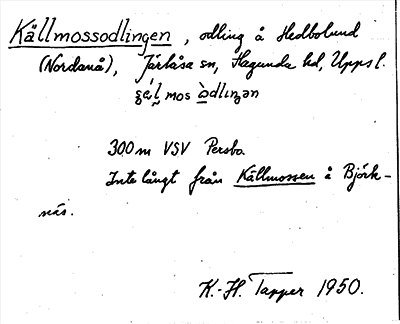 Källmossodlingen, odling å Hedbolund
(Nordanå), Järlåsa sn, Hagunda hd, Upps l.
mos òdlıŋən
300 m VSV Persbo.
Inte långt från Källmossen å Björk-
näs.
K.-H. Tapper 1950.